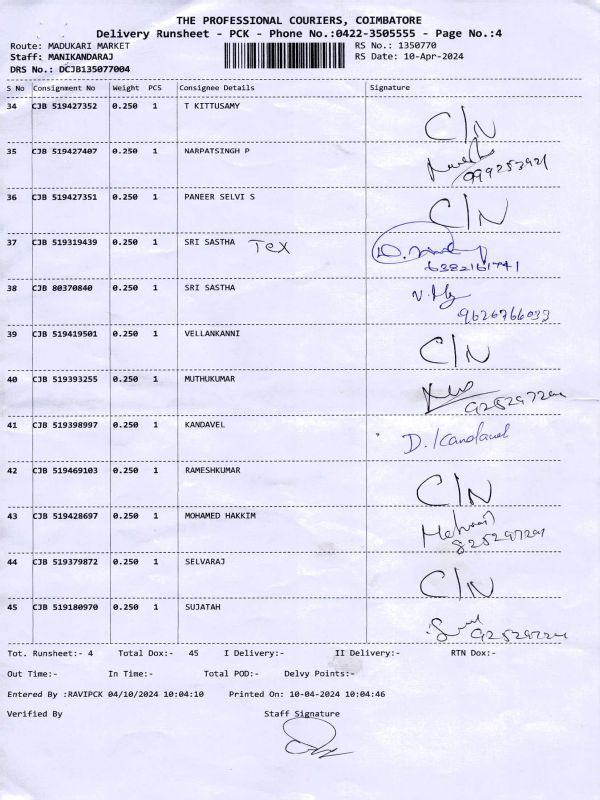 THE PROFESSIONAL COURIERS, COIMBATORE
Delivery Runsheet - PCK - Phone No.:0422-3505555 - Page No.:4
Route: MADUKARI MARKET RS No.: 1350770
Staff: MANIKANDARAJ RS Date: 10-Apr-2024
DRS No.: DCJB135077004
S No Consignment No Weight PCS Consignee Details Signature
34 CJB 519427352 0.250 1 T KITTUSAMY C/N
35 CJB 519427407 0.250 1 NARPATSINGH P
36 CJB 519427351 0.250 1 PANEER SELVI S C/N
37 CJB 519319439 0.250 1 SRI SASTHA Tex
6382161741
38 CJB 80370840 0.250 1 SRI SASTHA
9626766033
39 CJB 519419501 0.250 1 VELLANKANNI C/N
40 CJB 519393255 0.250 1 MUTHUKUMAR
41 CJB 519398997 0.250 1 KANDAVEL D. Kandavel
42 CJB 519469103 0.250 1 RAMESHKUMAR C/N
43 CJB 519428697 0.250 1 MOHAMED HAKKIM
44 CJB 519379872 0.250 1 SELVARAJ C/N
45 CJB 519180970 0.250 1 SUJATAH
Tot. Runsheet:- 4 Total Dox:- 45 I Delivery:- II Delivery:- RTN Dox:-
Out Time:- In Time:- Total POD:- Delvy Points:-
Entered By :RAVIPCK 04/10/2024 10:04:10 Printed On: 10-04-2024 10:04:46
Verified By Staff Signature